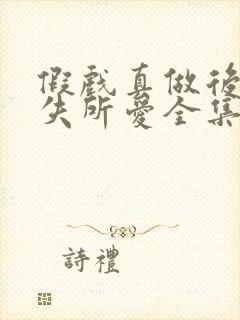 假戲真做後
失所愛全集
詩禮